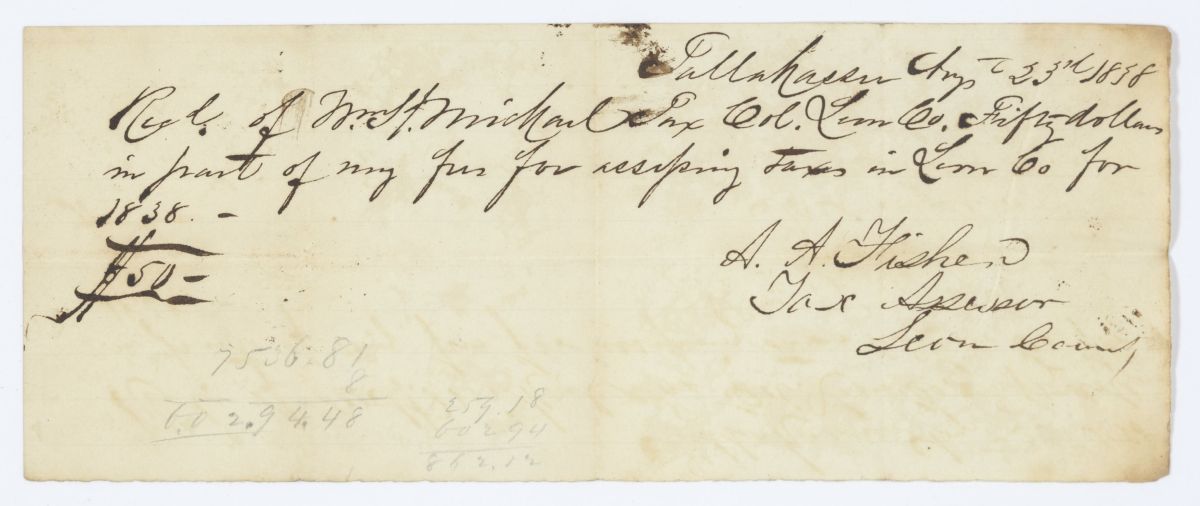 Tallahassee Augt 23rd 1838
Recd. of Wm. H. Mickael Tax Col. Leon Co. Fifty dollars
in part of my fees for assessing taxes in Leon Co for
1838. -
$50 -
A. A. Fisher
Tax Assessor
Leon County
7536.81
8
60 2.94.48
259.18
602.94
862.12